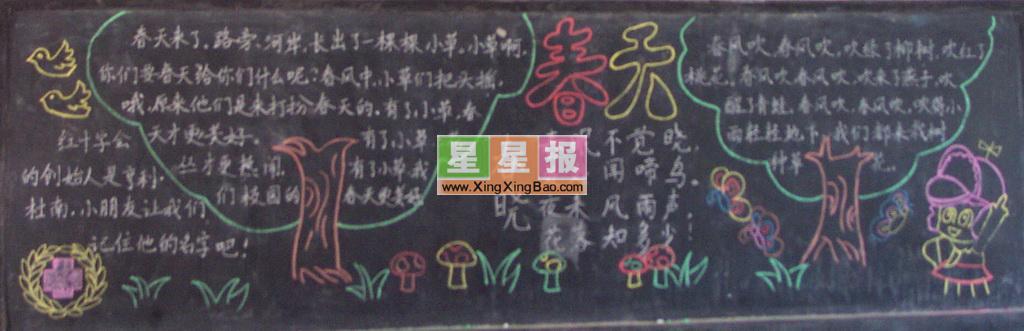 春天
春天来了,路旁、河岸,长出了一棵棵小草,小草啊,
你们要春天给你们什么呢?春风中,小草们把头摇,
哦,原来他们是来打扮春天的,有了小草,春
天才更美好,
有了小草
才更热闹,
有了小草我
们校园的
春天更美好
红十字会
的创始人是亨利·
杜南,小朋友让我们
记住他的名字吧!
星星报
www.XingXingBao.com
春
晓
不觉晓,
闻啼鸟。
夜来风雨声,
花落知多少!
春风吹,春风吹,吹绿了柳树,吹红了
桃花,春风吹,春风吹,吹来了燕子,吹
醒了青蛙,春风吹,春风吹,吹得小
雨轻轻地下,我们都来栽树
种草 花。